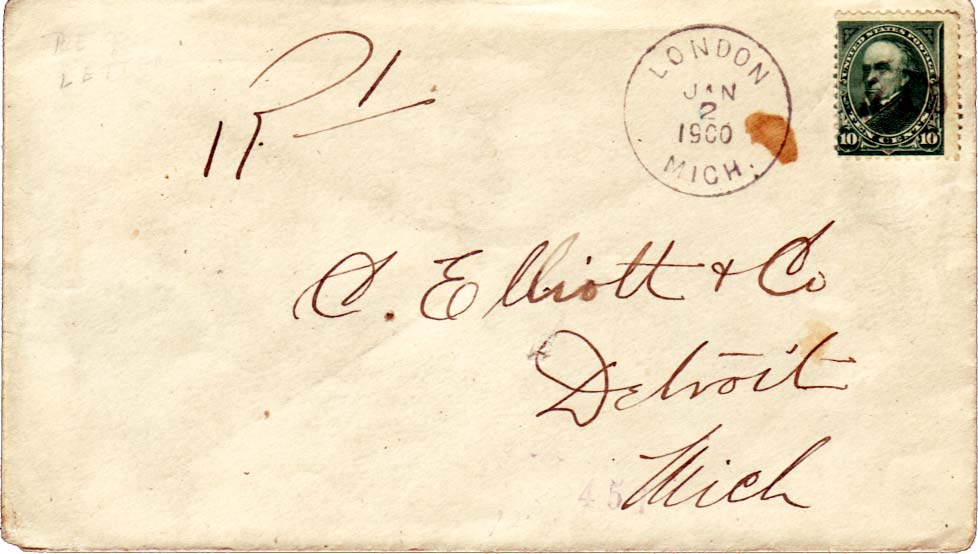 RE
LETTE
R 1
LONDON
JAN
2
1900
MICH.
UNITED STATES POSTAGE
10 TEN CENTS 10
C. Elliott & Co
Detroit
Mich
45